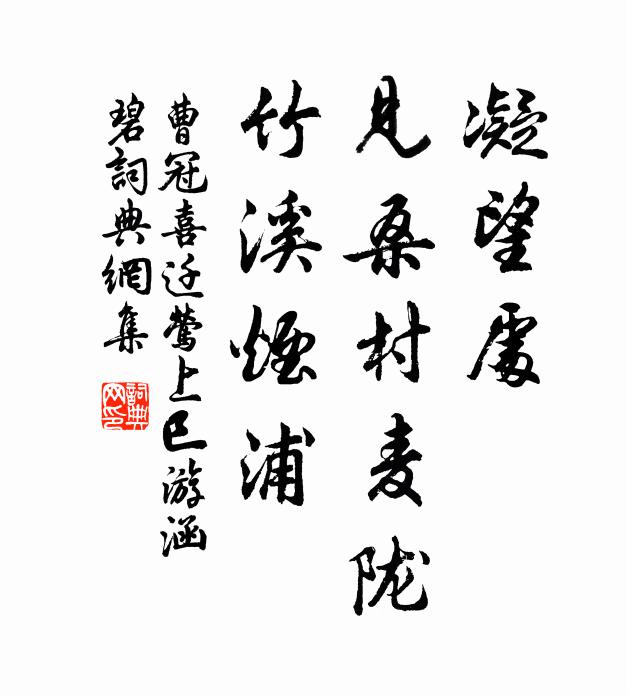 凝望處
見桑村麦陇
竹溪煙浦
曹冠喜迁莺上巳游涵
碧詞典網集
詞典網印